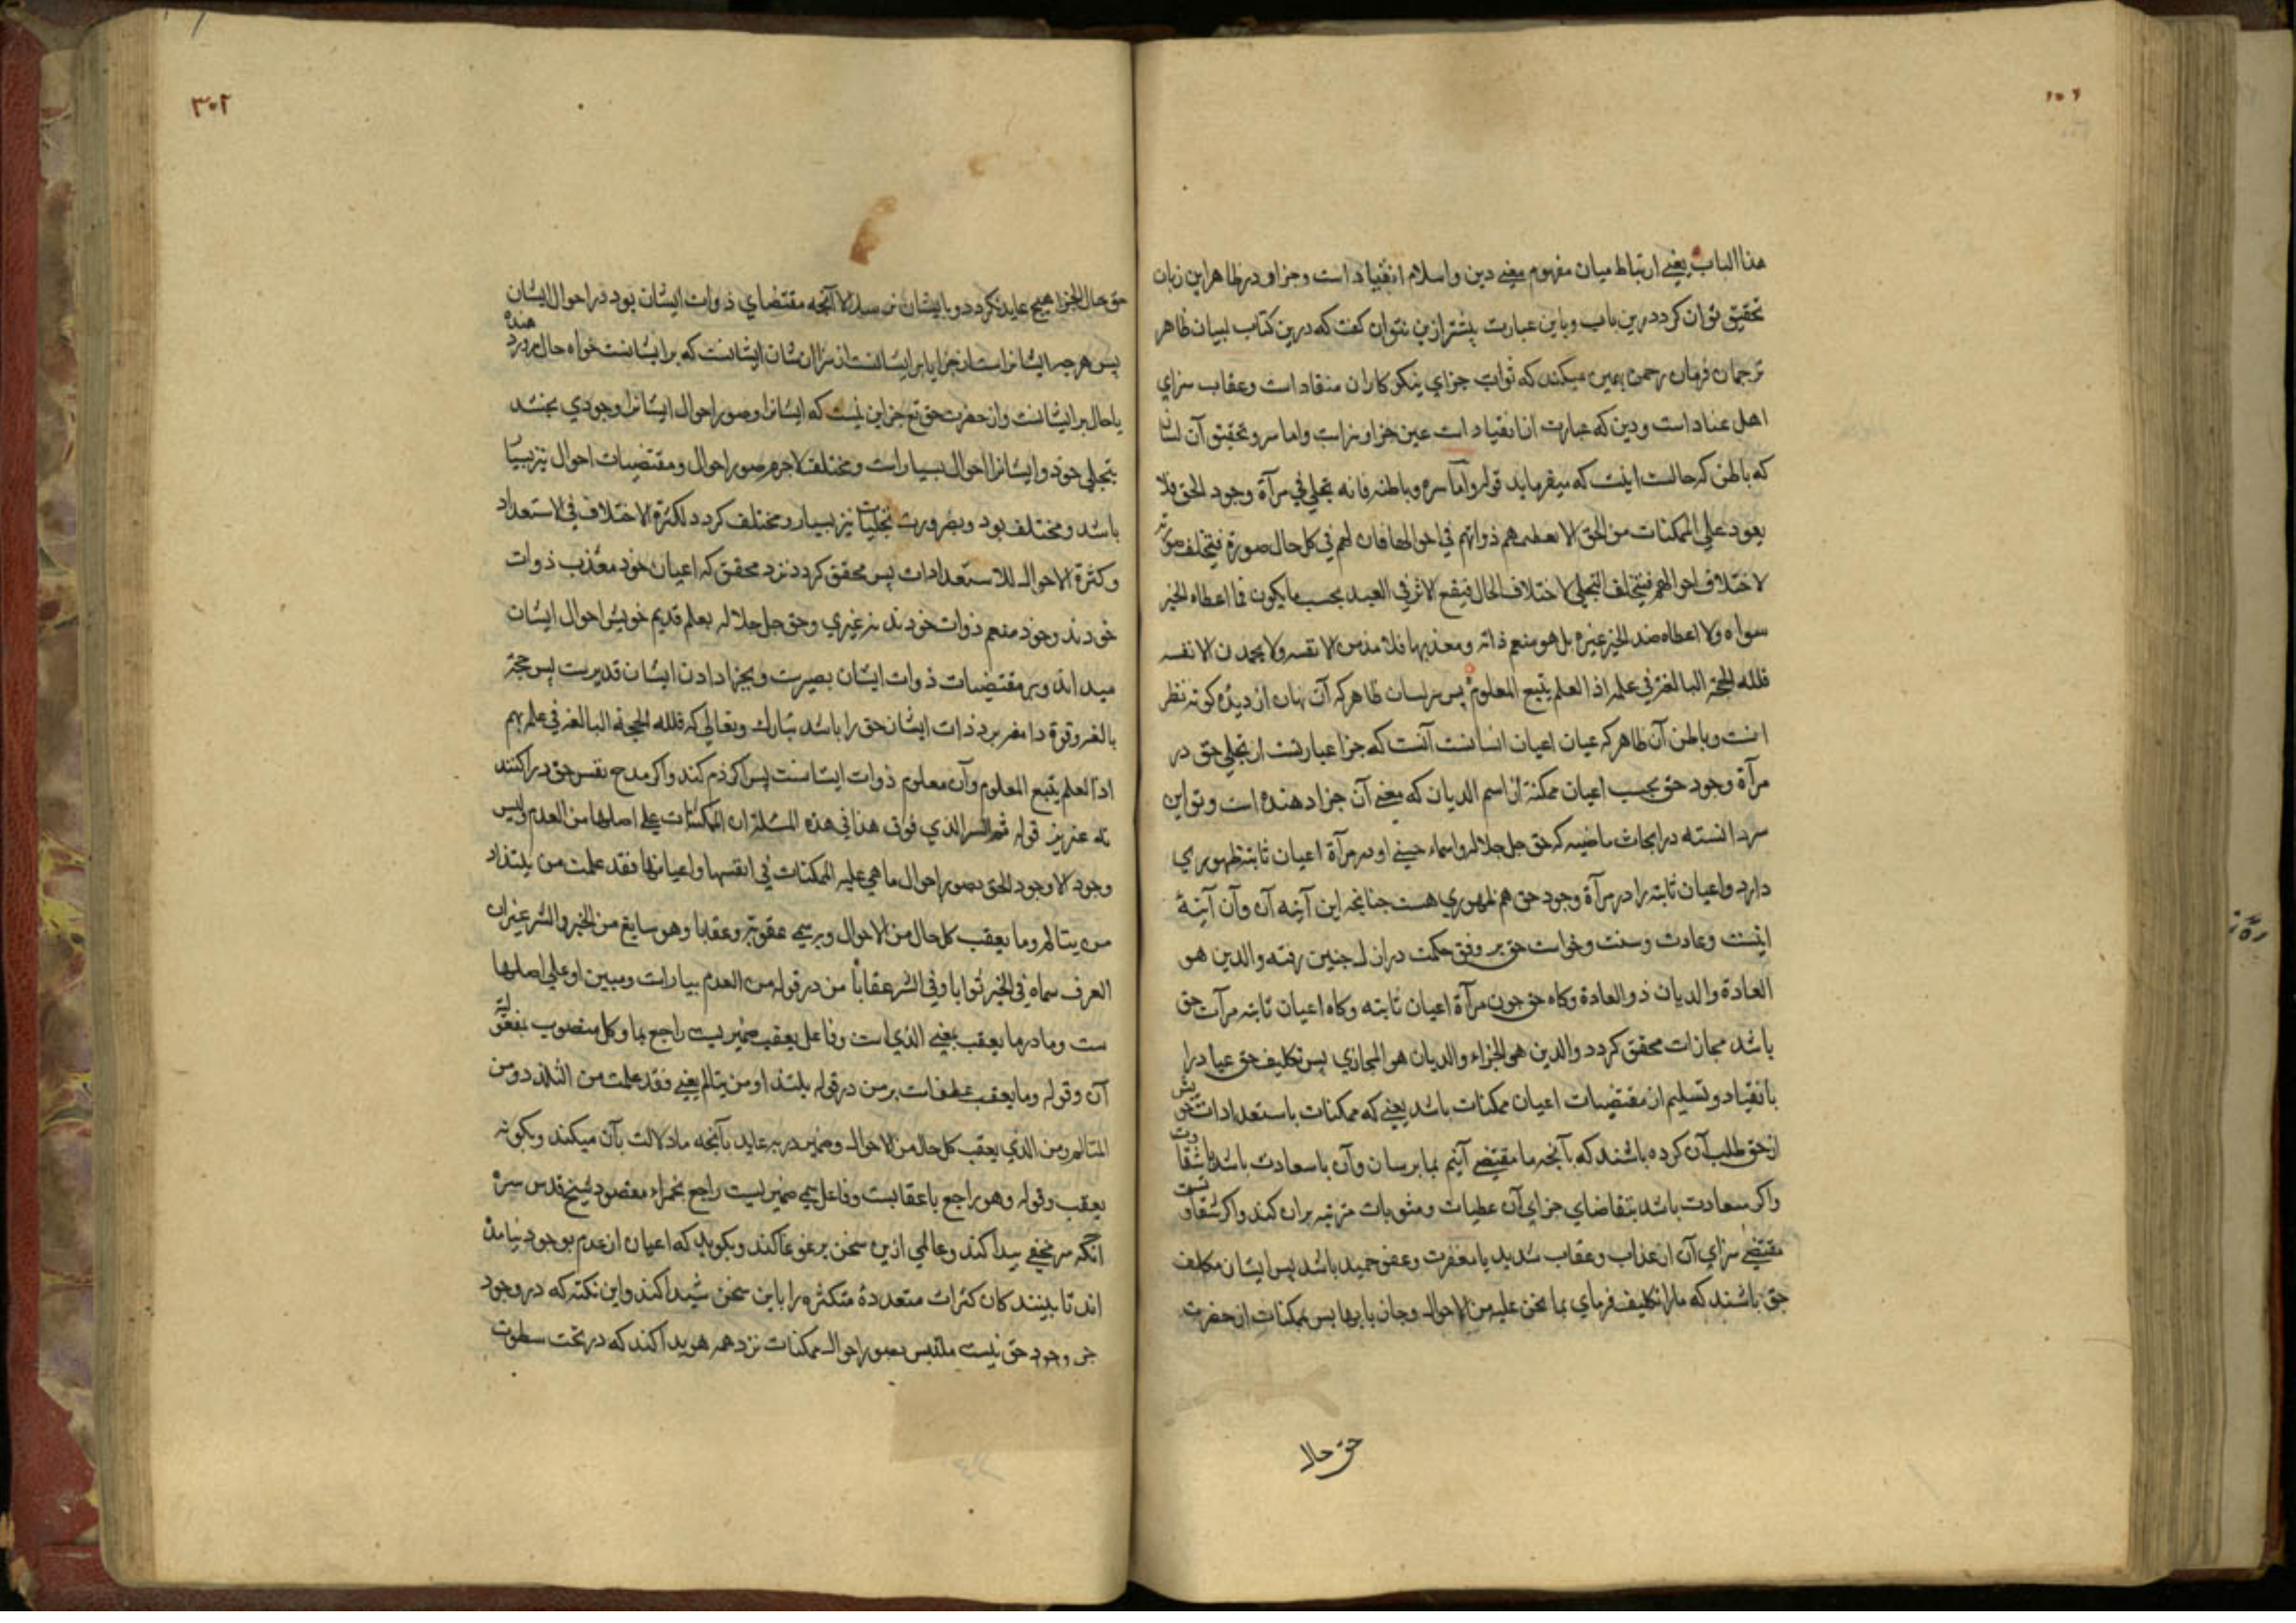 هذا الباب یعنی ارتباط میان مفهوم معنی دین و اسلام انقیاد است و جزا و در ظاهر این زبان
تحقیق توان کرد درین باب و باین عبارت پیشتر ازین نتوان کفت که درین کتاب لبیان ظاهر
ترجمان فرمان رحمن همین میکند که ثواب جزای نیکو کاران منقاد است و عقاب سزای
اهل عناد است و دین که عبارت از انقیاد است عین جزا و سزاست و اما سر و تحقیق آن لسان
که باطن کرحالست اینست که میفرماید قوله و اما سره و باطنه فانه تجلی فی مرآة وجود الحق فلا
یعود علی الممکنات من الحق الا ما تعطیهم ذواتهم فی احوالها فان لهم فی کل حال صورة فیختلف صورهم
لاختلاف احوالهم فیختلف التجلی لاختلاف الحال فیقع الاثر فی العبد بحسب ما یکون فما اعطاه الخیر
سواه ولا اعطاه ضد الخیر غیره بل هو منعم ذاته و معذبها فلا یذمن الا نفسه ولا یحمدن الا نفسه
فلله الحجة البالغة فی علمه اذ العلم یتبع المعلوم پس سر لسان ظاهر که آن نهان از دیده کوته نظر
انست و باطن آن ظاهر که عیان اعیان انسانست آنست که جزا عبارتست از تجلی حق در
مرآة وجود حق بحسب اعیان ممکنة از اسم الدیان که معنی آن جزا دهنده است و تو این
سر دانسته در ابحاث ماضیه که حق جل جلاله و اسماء حسنی او در مرآة اعیان ثابته ظهوری
دارد و اعیان ثابته را در مرآة وجود حق هم ظهوری هست چنانچه این آینه آن و آن آینهٔ
اینست و عادت و سنت و خواست حق بر وفق حکمت در ازل چنین رفته و الدین هو
العادة و الدیان ذو العادة و کاه حق چون مرآة اعیان ثابته و کاه اعیان ثابته مرآت حق
باشد مجازات محقق کردد و الدین هو الجزاء و الدیان هو المجازی پس تکلیف حق عباد را
بانقیاد و تسلیم از مقتضیات اعیان ممکنات باشد یعنی که ممکنات باستعدادات خویش
از حق طلب آن کرده باشند که بآنچه ما مقتضی آنیم بما برسان و آن یا سعادت باشد یا شقاوت
و اکر سعادت باشد بتقاضای جزای آن عطیات و مثوبات مترتبه بران کند و اکر شقاوتست
مقتضی سزای آن از عذاب و عقاب شدید یا مغفرت و عفو حمید باشد پس ایشان مکلف
حق باشند که ما را تکلیف فرمای بما نحن علیه من الاحوال و جازنا بها پس ممکنات از حضرت
حق حال
۳۰۲
حق حال الجزا هیچ عاید نکردد و بایشان نرسد الا آنچه مقتضای ذوات ایشان بود در احوال ایشان
پس هرچه ایشانراست از جزا یا بر ایشانست از سزا از شان ایشانست که بر ایشانست خواه حال مرورد هنده
یا حال بر ایشانست و از حضرت حق تع جز این نیست که ایشانرا و صور احوال ایشانرا وجودی بخشد
بتجلی خود و ایشانرا احوال بسیار است و مختلف لاجرم صور احوال و مقتضیات احوال نیز بسیار
باشد و مختلف بود و بضرورت تجلیات نیز بسیار و مختلف کردد لکثرة الاختلاف فی الاستعداد
و کثرة الاحوال للاستعدادات پس محقق کردد نزد محقق که اعیان خود معذب ذوات
خودند و خود منعم ذوات خودند نه غیری و حق جل جلاله بعلم قدیم خویش احوال ایشان
میداند و بر مقتضیات ذوات ایشان بصیرست و بجزا دادن ایشان قدیرست پس حجة
بالغه و قوة دامغه بر ذات ایشان حق را باشد تبارک و تعالی که فلله الحجة البالغة فی علمه بهم
اذ العلم یتبع المعلوم و آن معلوم ذوات ایشانست پس اکر ذم کند و اکر مدح نفس خود را کنند
نه غیریرا قوله ثم السر الذی فوق هذا فی هذه المسئلة ان الممکنات علی اصلها من العدم و لیس
وجود الا وجود الحق بصور احوال ما هی علیه الممکنات فی انفسها و اعیانها فقد علمت من یلتذ او
من یتالم و ما یعقب کل حال من الاحوال و به سمی عقوبة و عقابا وهو سایغ من الخیر و الشر غیر ان
العرف سماه فی الخیر ثوابا و فی الشر عقابا من در قوله من العدم بیانست و مبین او علی اصلها
ست و ما در ما یعقب بمعنی الذی است و فاعل یعقب ضمیریست راجع بما و کل منصوب بمفعولیة
آن و قوله و ما یعقب عطفست بر من در قوله یلتذ او من یتالم یعنی فقد علمت من التلذذ و من
المتالم و من الذی یعقب کل حال من الاحوال و ضمیر در به عاید بآنچه ما دلالت بآن میکند و بکونه
یعقب و قوله وهو راجع با عقابست و فاعل سمی ضمیریست راجع بجزاء مقصود شیخ قدس سره
آنکه سر مخفی پیدا کند و عالمی ازین سخن پر غوغا کند و بکوید که اعیان از عدم بوجود نیامده
اند تا بینندکان کثرات متعددهٔ متکثره را باین سخن شیدا کند و این نکته که در وجود
جز وجود حق نیست ملتبس بصور احوال ممکنات نزد همه هویدا کند که در تحت سطوت